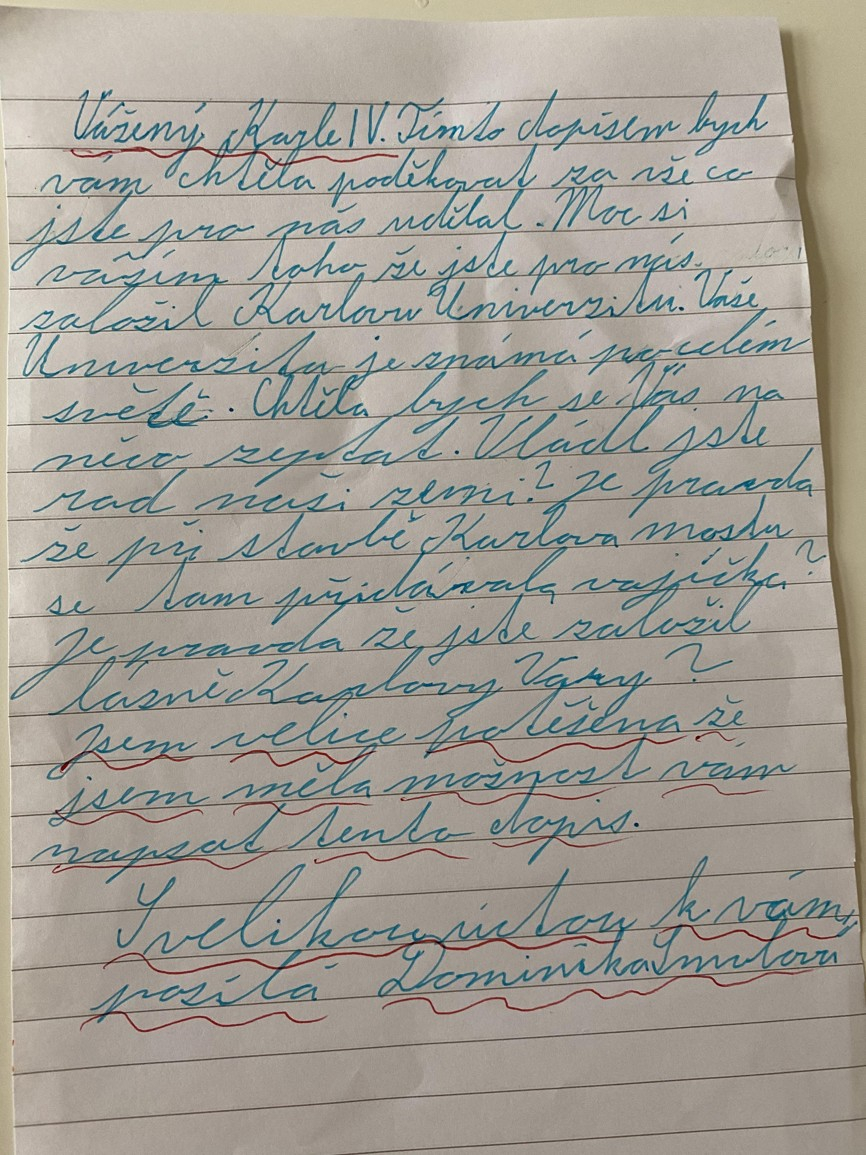 Vážený Karle IV. Tímto dopisem bych
vám chtěla poděkovat za vše co
jste pro nás udělal. Moc si
vážím toho že jste pro nás
založil Karlovu Univerzitu. Vaše
Univerzita je známá po celém
světě. Chtěla bych se Vás na
něco zeptat. Vládl jste
rad naši zemi? Je pravda
že při stavbě Karlova mostu
se tam přidávala vajíčka?
Je pravda že jste založil
lázně Karlovy Vary?
Jsem velice potěšena že
jsem měla možnost vám
napsat tento dopis.
S velikou úctou k vám,
posílá Dominika